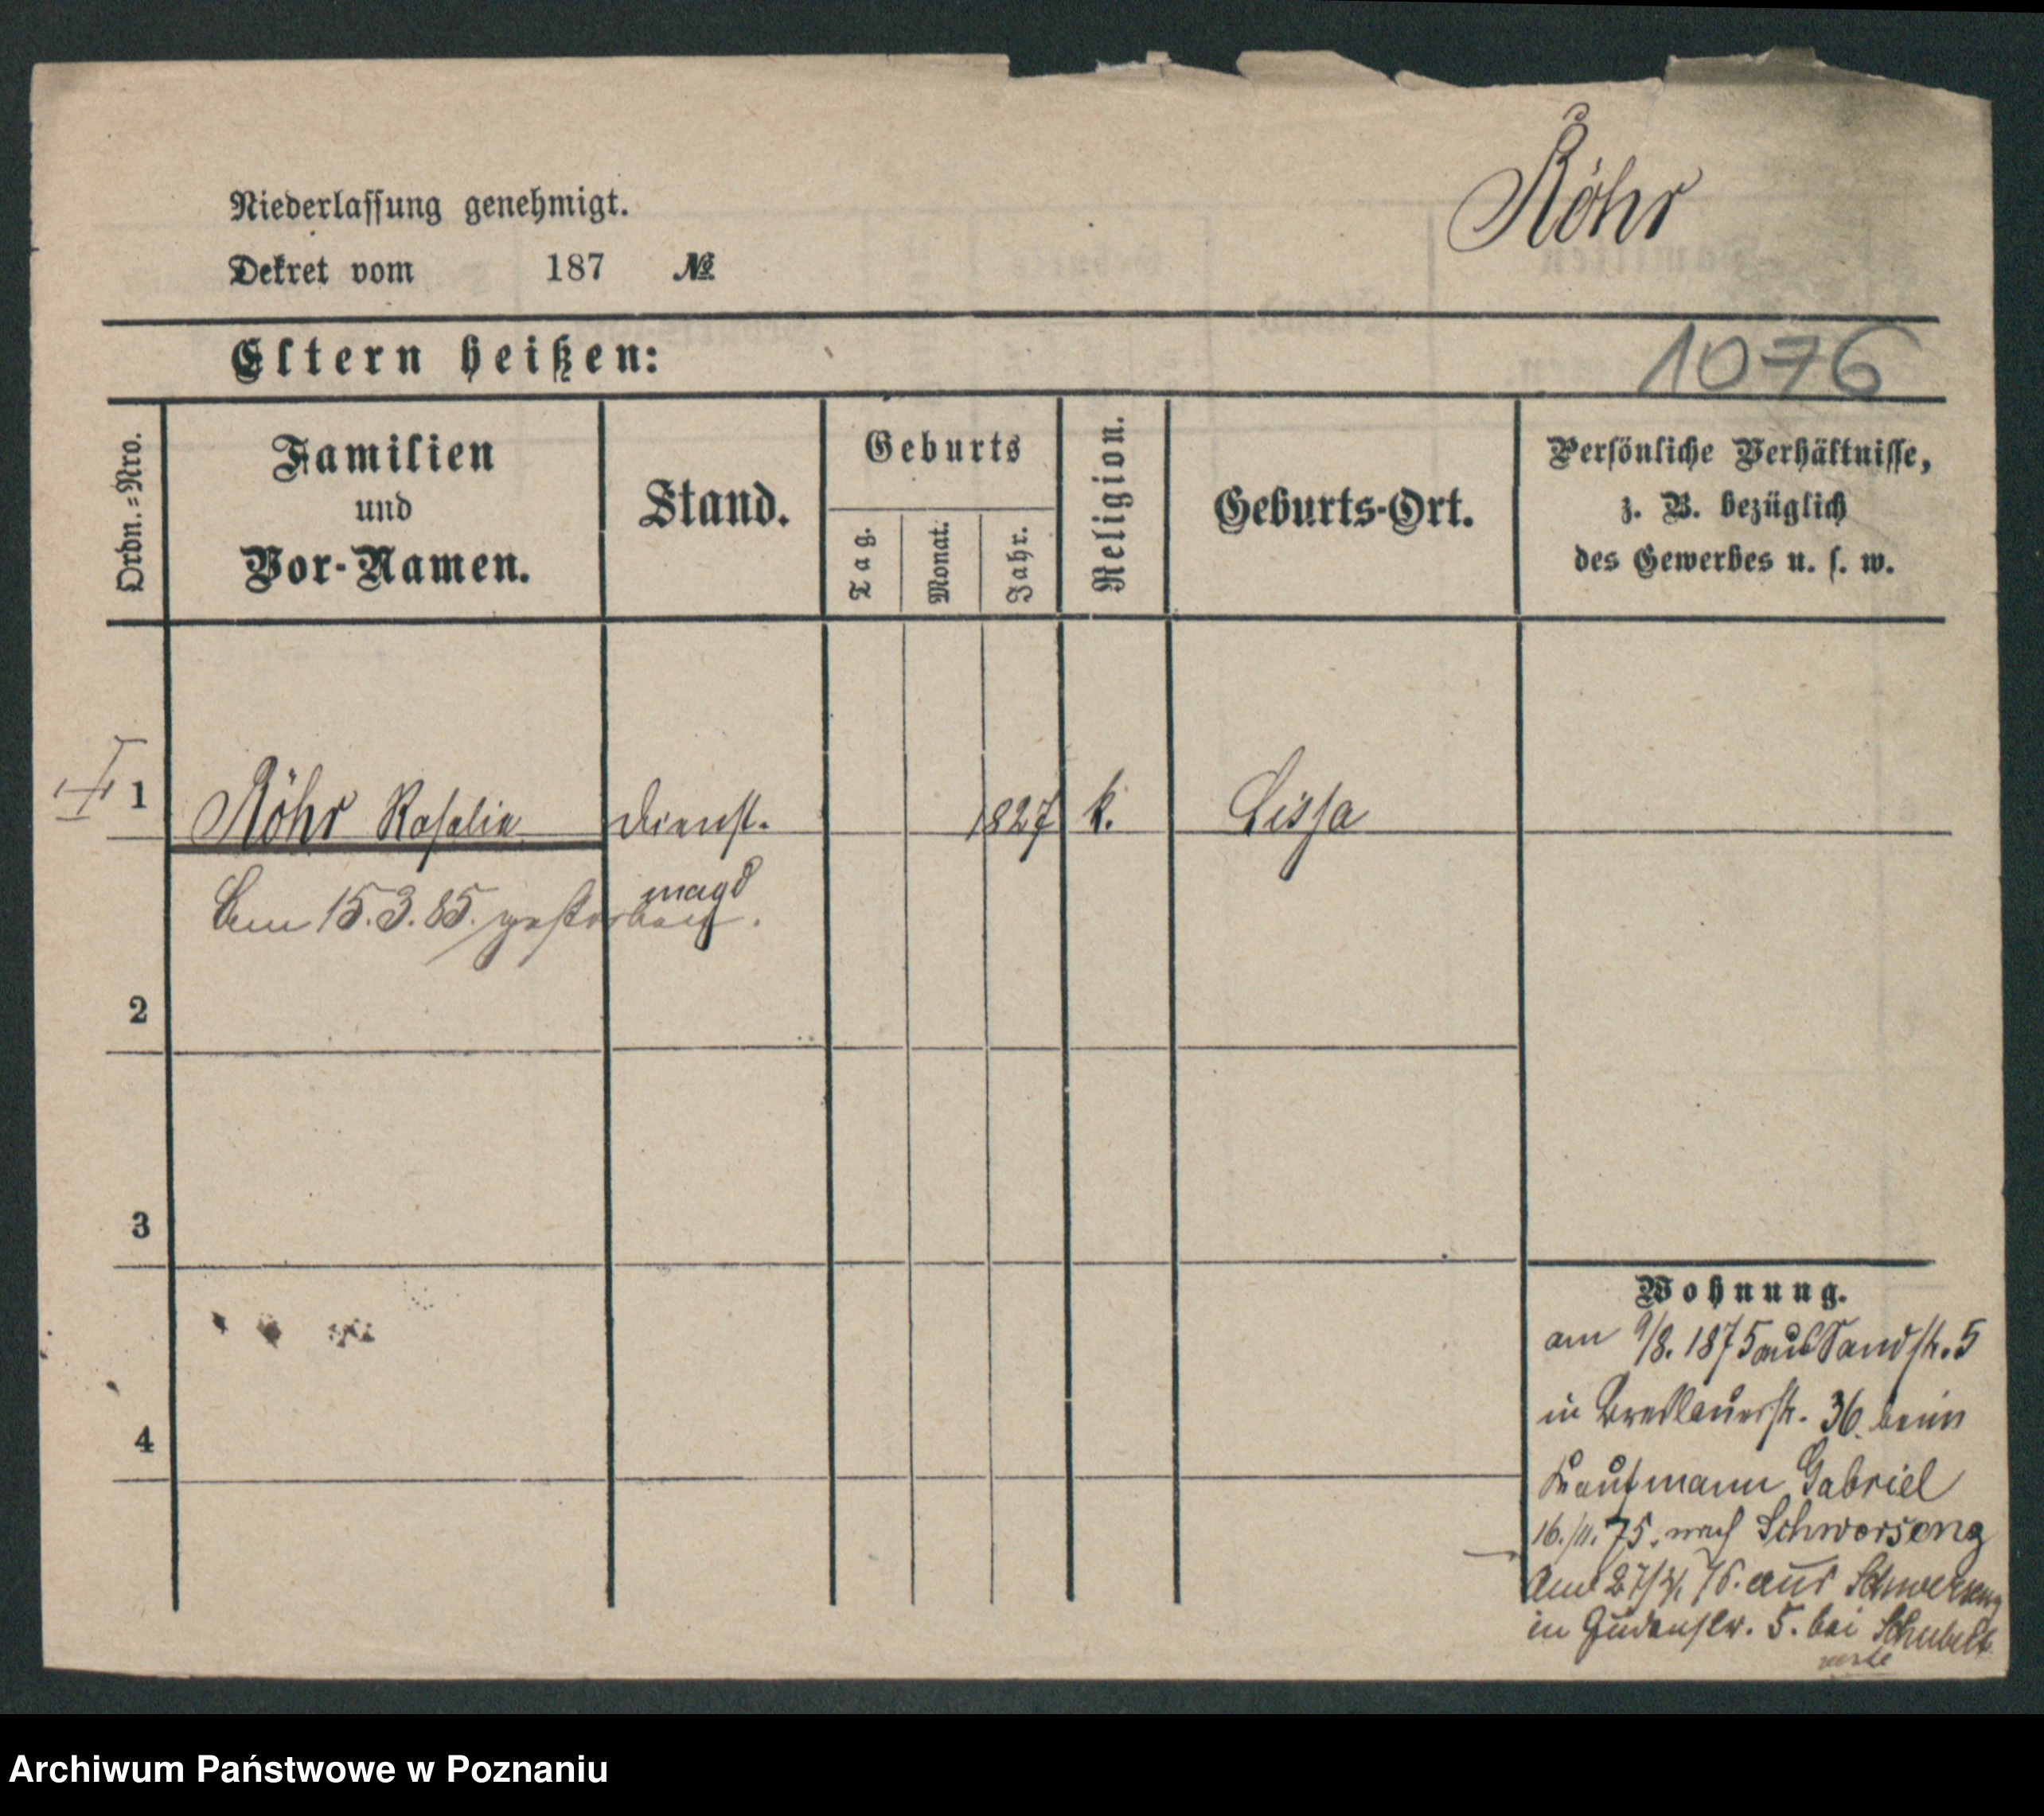 Röhr
Niederlassung genehmigt.
Dekret vom 187 №
Eltern heißen:
1076
Ordn.=Nro.
Familien
und
Vor-Namen.
Stand.
Geburts
Tag.
Monat.
Jahr.
Religion.
Geburts-Ort.
Persönliche Verhältnisse,
z. B. bezüglich
des Gewerbes u. s. w.
1 Röhr Rosalie Dienst- 1827 k. Lissa
magd
15.3.85. gestorben.
2
3
4
Wohnung.
am 9/8. 1875 aus Sandstr. 5
in Breslauerstr. 36. beim
Kaufmann Gabriel
16./11. 75. nach Schwersenz
Am 27/4 76. aus Schwersenz
in Judenstr. 5. bei Schubert
Archiwum Państwowe w Poznaniu